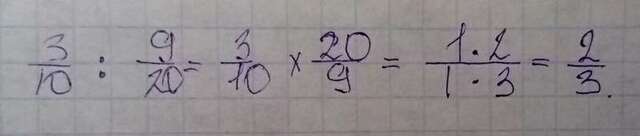 3/10 : 9/20 = 3/10 × 20/9 = 1·2/1·3 = 2/3.